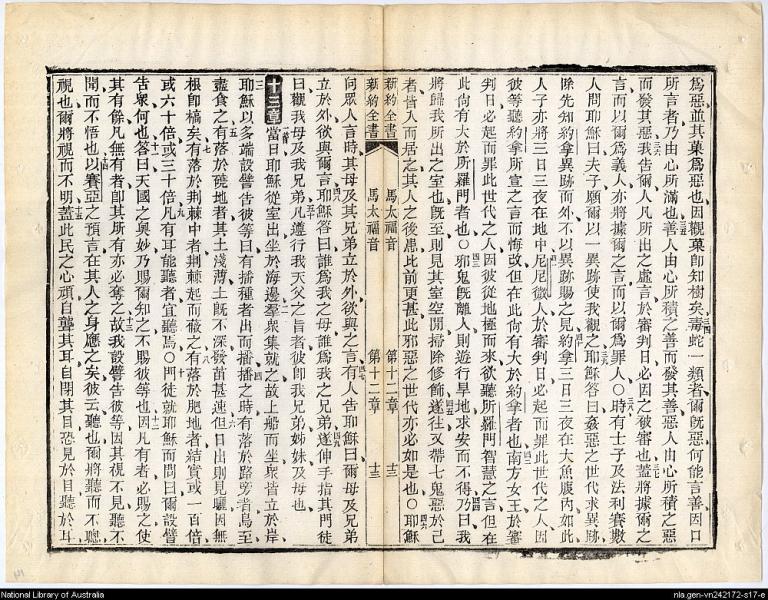 爲惡並其菓爲惡也因觀菓卽知樹矣毒蛇一類者爾旣惡何能言善因口
所言者乃由心所滿也善人由心所積之善而發其善惡人由心所積之惡
而發其惡我告爾人凡所出之虛言於審判日必因之被審也蓋將據爾之
言而以爾爲義人亦將據爾之言而以爾爲罪人〇時有士子及法利賽數
人問耶穌曰夫子願爾以一異跡使我觀之耶穌答曰姦惡之世代求異跡
除先知約拿異跡而外不以異跡賜之見約拿三日三夜在大魚腹內如此
人子亦將三日三夜在地中尼尼微人於審判日必起而罪此世代之人因
彼等聽約拿所宣之言而悔改但在此尙有大於約拿者也南方女王於審
判日必起而罪此世代之人因彼從地極而來欲聽所羅門智慧之言但在
此尙有大於所羅門者也〇邪鬼旣離人則遊行旱地求安而不得乃曰我
將歸我所出之室也旣至則見其室空閒掃除修飾遂往又帶七鬼惡於己
者偕入而居之其人之後患此前更甚此邪惡之世代亦必如是也〇耶穌
新約全書 馬太福音 第十二章 十三
新約全書 馬太福音 第十二章 十三
向眾人言時其母及其兄弟立於外欲與之言有人告耶穌曰爾母及兄弟
立於外欲與爾言耶穌答曰誰爲我之母誰爲我之兄弟遂伸手指其門徒
曰觀我母及我兄弟凡遵行我天父之旨者彼卽我兄弟姊妹及母也
十三章 當日耶穌從室出坐於海邊羣眾集就之故上船而坐眾皆立於岸
耶穌以多端設譬告彼等曰有播種者出而播播之時有落於路旁者鳥至
盡食之有落於磽地者其土淺薄土旣不深發苗甚速但日出則見曬因無
根卽槁矣有落於荆棘中者荆棘起而蔽之有落於肥地者結實或一百倍
或六十倍或三十倍凡有耳能聽者宜聽焉〇門徒就耶穌而問曰爾設譬
告眾何也答曰天國之奧妙乃賜爾知之不賜彼等也因凡有者必賜之使
其有餘凡無有者卽其所有亦必奪之故我設譬告彼等因其視不見聽不
聞而不悟也以賽亞之預言在其人之身應之矣彼云聽也爾將聽而不聰
視也爾將視而不明蓋此民之心頑自聾其耳自閉其目恐見於目聽於耳
National Library of Australia
nla.gen-vn242172-s17-e